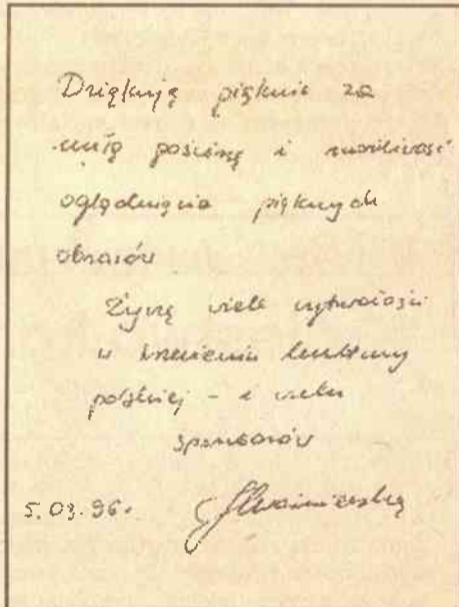 Dziękuję pięknie za
miłą gościnę i możliwość
oglądnięcia pięknych
obrazów
Życzę wiele wytrwałości
w krzewieniu kultury
polskiej - i wielu
sponsorów
5.03.96.